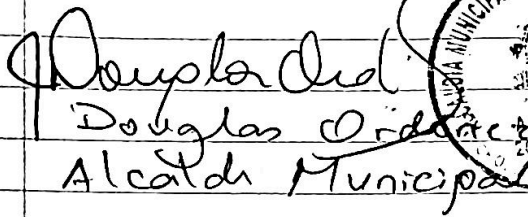 Douglas Ord
Douglas Ordoñez
Alcalde Municipal
ALCALDIA MUNICIPAL